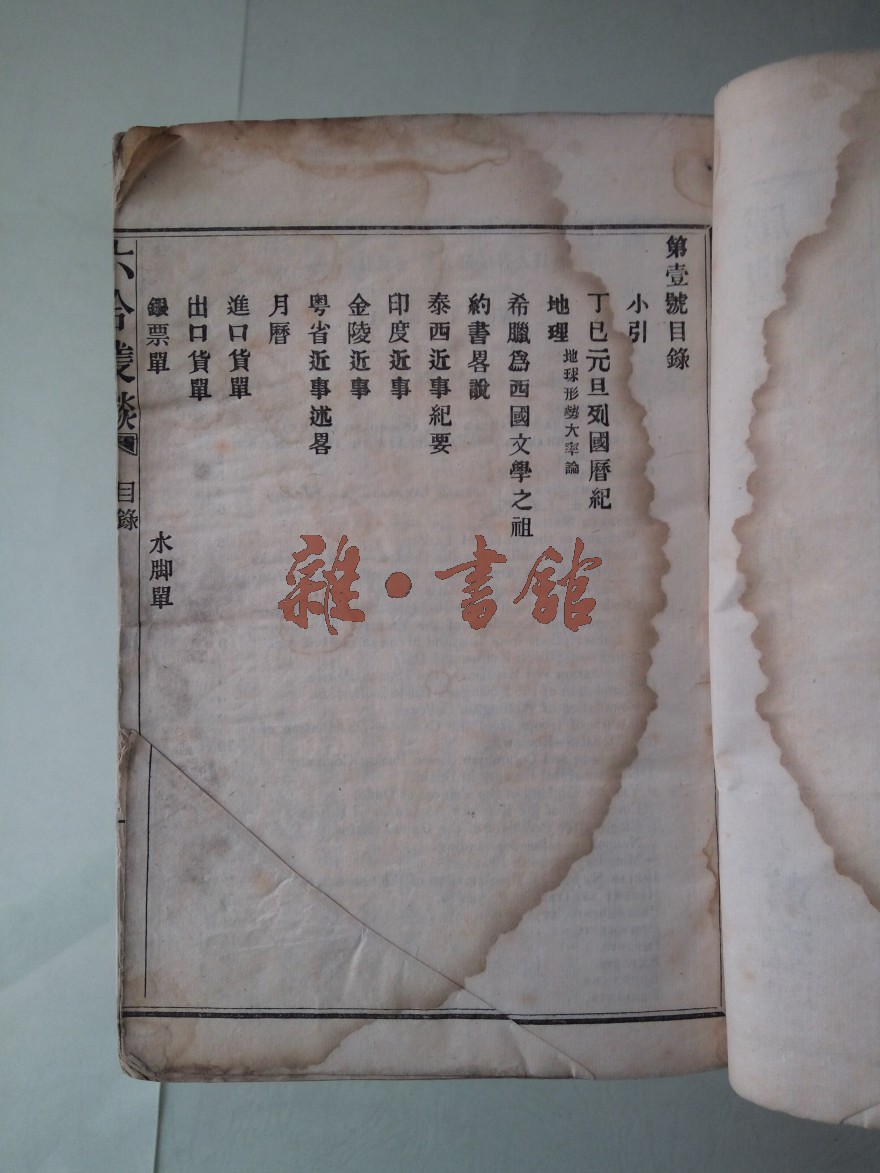 第壹號目錄
小引
丁巳元旦列國曆紀
地理 地球形勢大率論
希臘爲西國文學之祖
約書畧說
泰西近事紀要
印度近事
金陵近事
粵省近事述畧
月曆
進口貨單
出口貨單
銀票單 水脚單
六合叢談 目錄
雜·書館